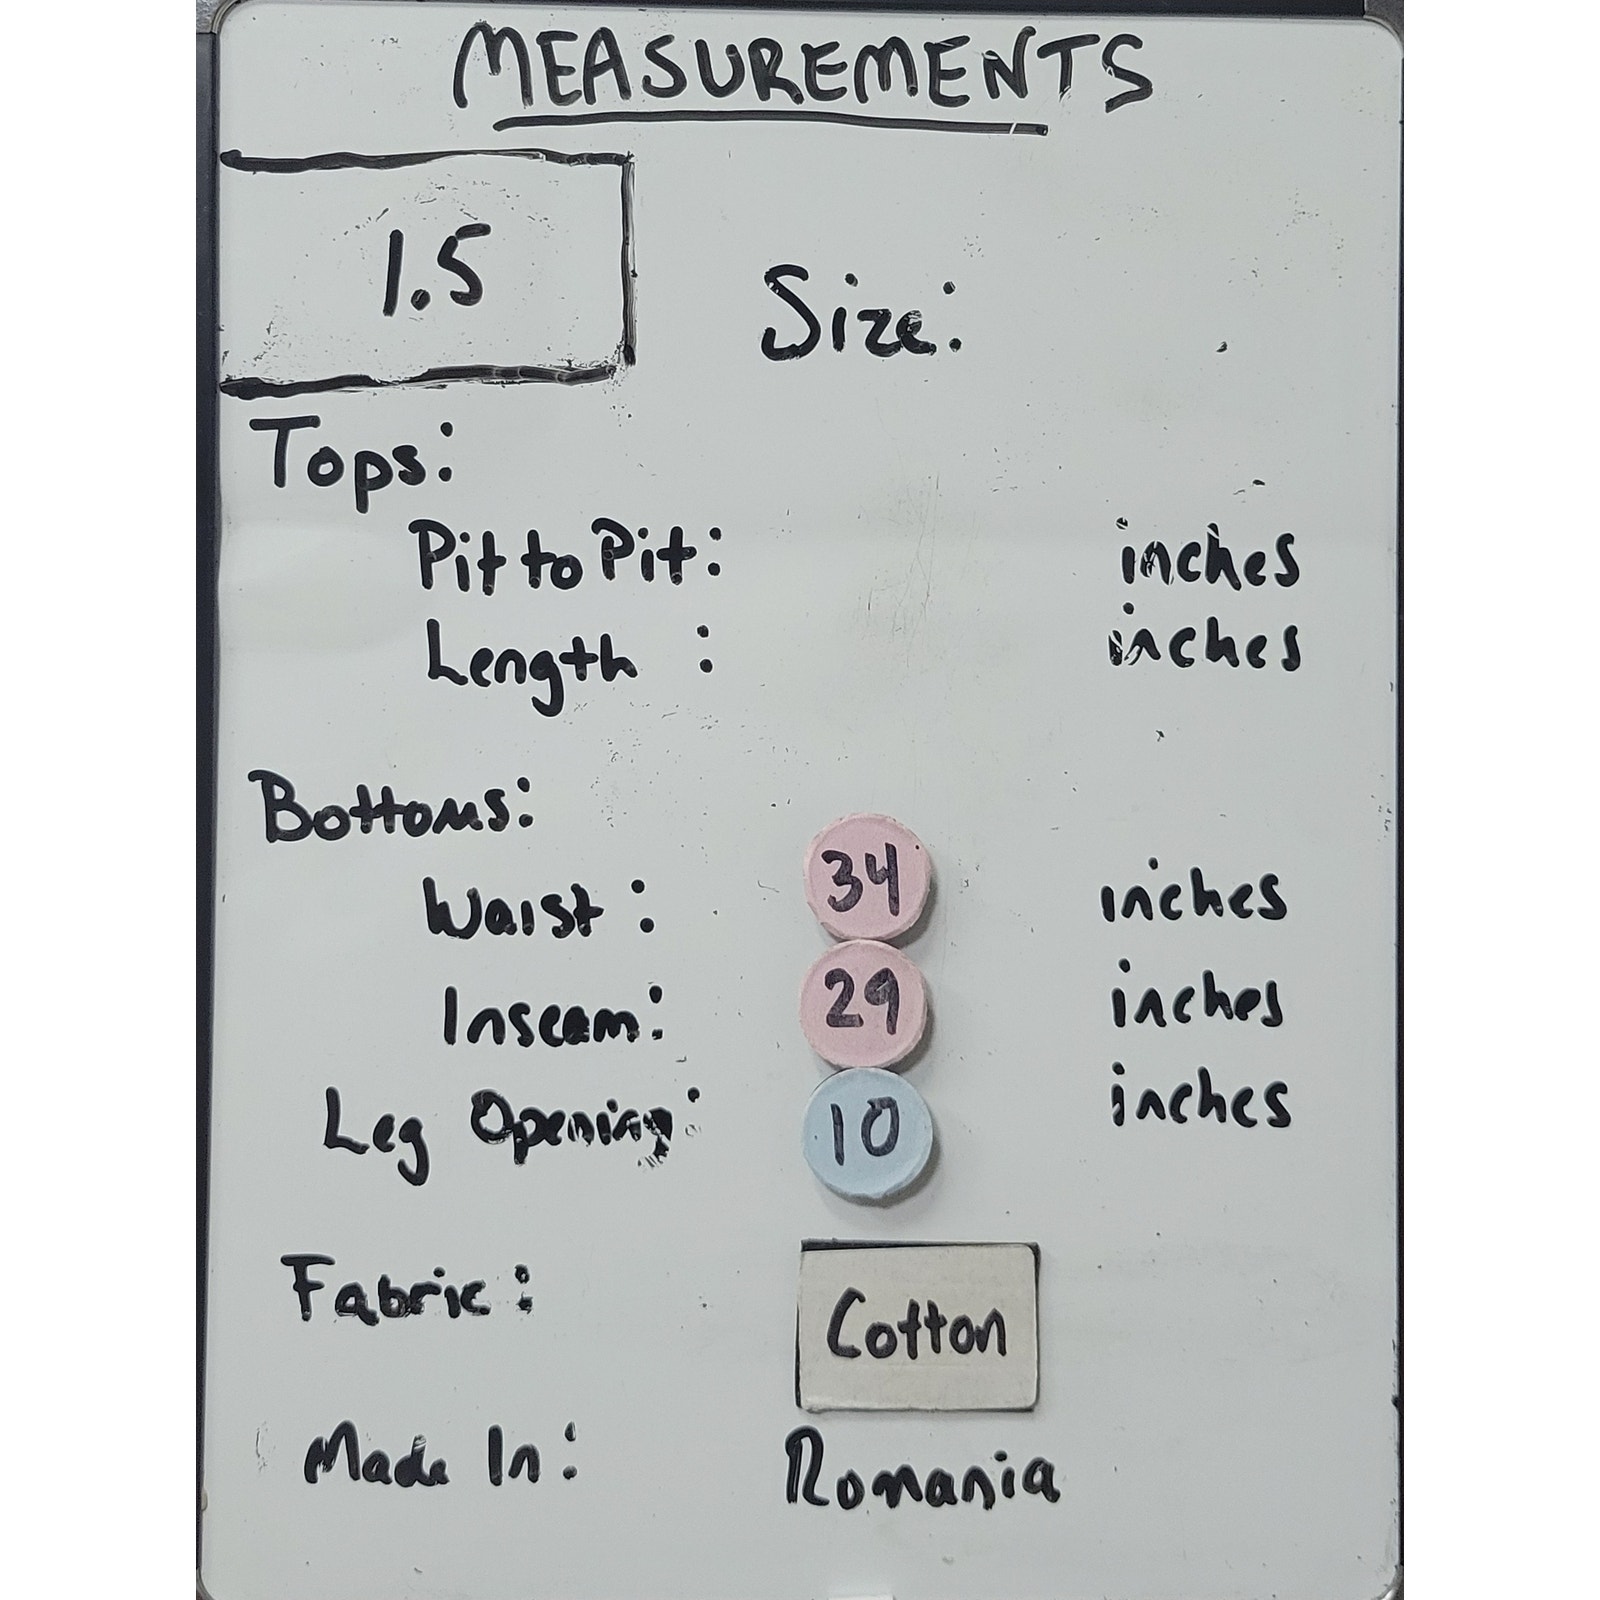 MEASUREMENTS
1.5
Size:
Tops:
Pit to Pit: inches
Length : inches
Bottoms:
Waist : 34 inches
Inseam: 29 inches
Leg Opening: 10 inches
Fabric: Cotton
Made In: Romania